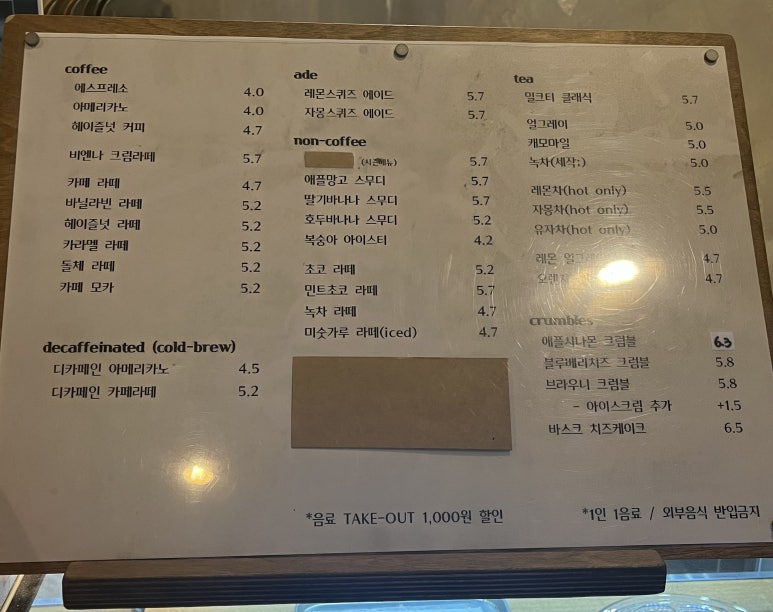 coffee
에스프레소 4.0
아메리카노 4.0
헤이즐넛 커피 4.7
비엔나 크림라떼 5.7
카페 라떼 4.7
바닐라빈 라떼 5.2
헤이즐넛 라떼 5.2
카라멜 라떼 5.2
돌체 라떼 5.2
카페 모카 5.2
decaffeinated (cold-brew)
디카페인 아메리카노 4.5
디카페인 카페라떼 5.2
ade
레몬스퀴즈 에이드 5.7
자몽스퀴즈 에이드 5.7
non-coffee
(시즌메뉴) 5.7
애플망고 스무디 5.7
딸기바나나 스무디 5.7
호두바나나 스무디 5.2
복숭아 아이스티 4.2
초코 라떼 5.2
민트초코 라떼 5.7
녹차 라떼 4.7
미숫가루 라떼(iced) 4.7
*음료 TAKE-OUT 1,000원 할인
tea
밀크티 클래식 5.7
얼그레이 5.0
캐모마일 5.0
녹차(세작) 5.0
레몬차(hot only) 5.5
자몽차(hot only) 5.5
유자차(hot only) 5.0
레몬 얼그레이 4.7
4.7
crumbles
애플시나몬 크럼블 6.3
블루베리치즈 크럼블 5.8
브라우니 크럼블 5.8
- 아이스크림 추가 +1.5
바스크 치즈케이크 6.5
*1인 1음료 / 외부음식 반입금지